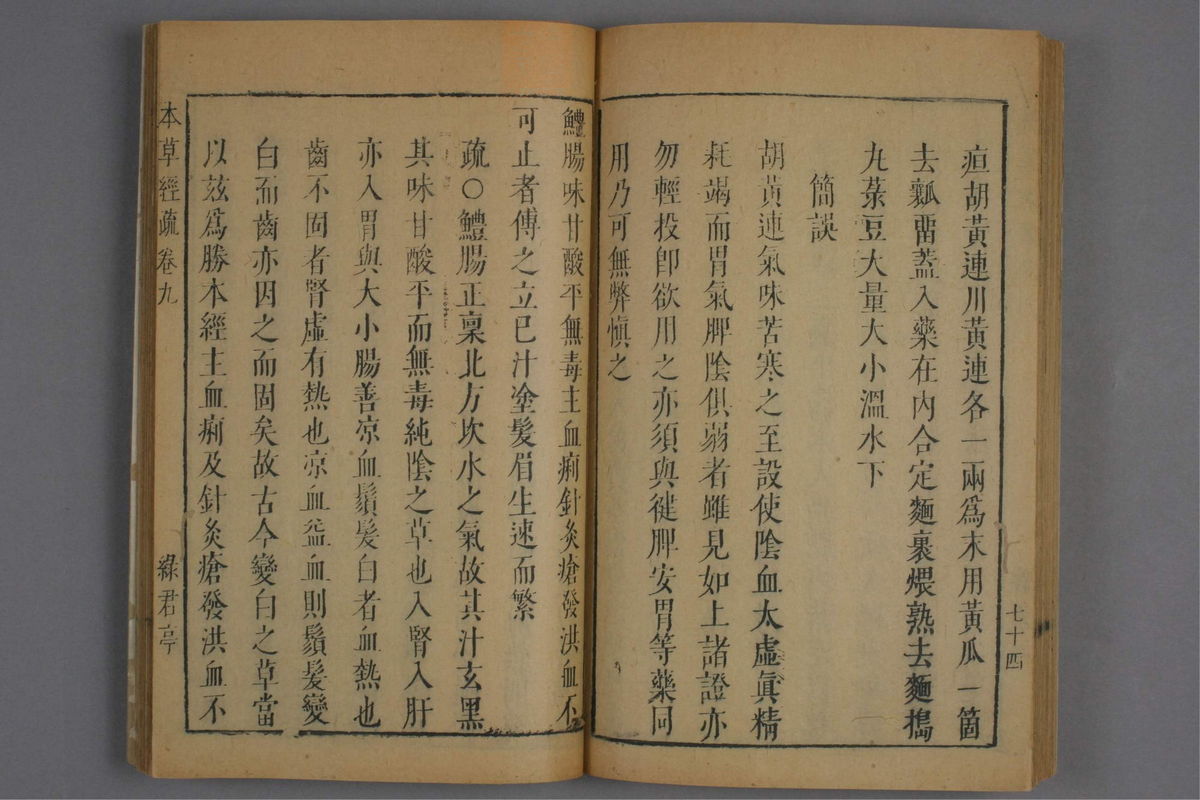 疸胡黃連川黃連各一兩爲末用黃瓜一箇
去瓤畱蓋入藥在內合定麵裹煨熟去麵搗
丸菉豆大量大小溫水下
簡誤
胡黃連氣味苦寒之至設使陰血太虛眞精
耗竭而胃氣脾陰俱弱者雖見如上諸證亦
勿輕投卽欲用之亦須與健脾安胃等藥同
用乃可無弊愼之
七十四
鱧腸味甘酸平無毒主血痢針灸瘡發洪血不
可止者傅之立已汁塗髮眉生速而繁
疏○鱧腸正稟北方坎水之氣故其汁玄黑
其味甘酸平而無毒純陰之草也入腎入肝
亦入胃與大小腸善凉血鬚髮白者血熱也
齒不固者腎虛有熱也凉血益血則鬚髮變
白而齒亦因之而固矣故古今變白之草當
以茲爲勝本經主血痢及針灸瘡發洪血不
本草經疏卷九
綠君亭